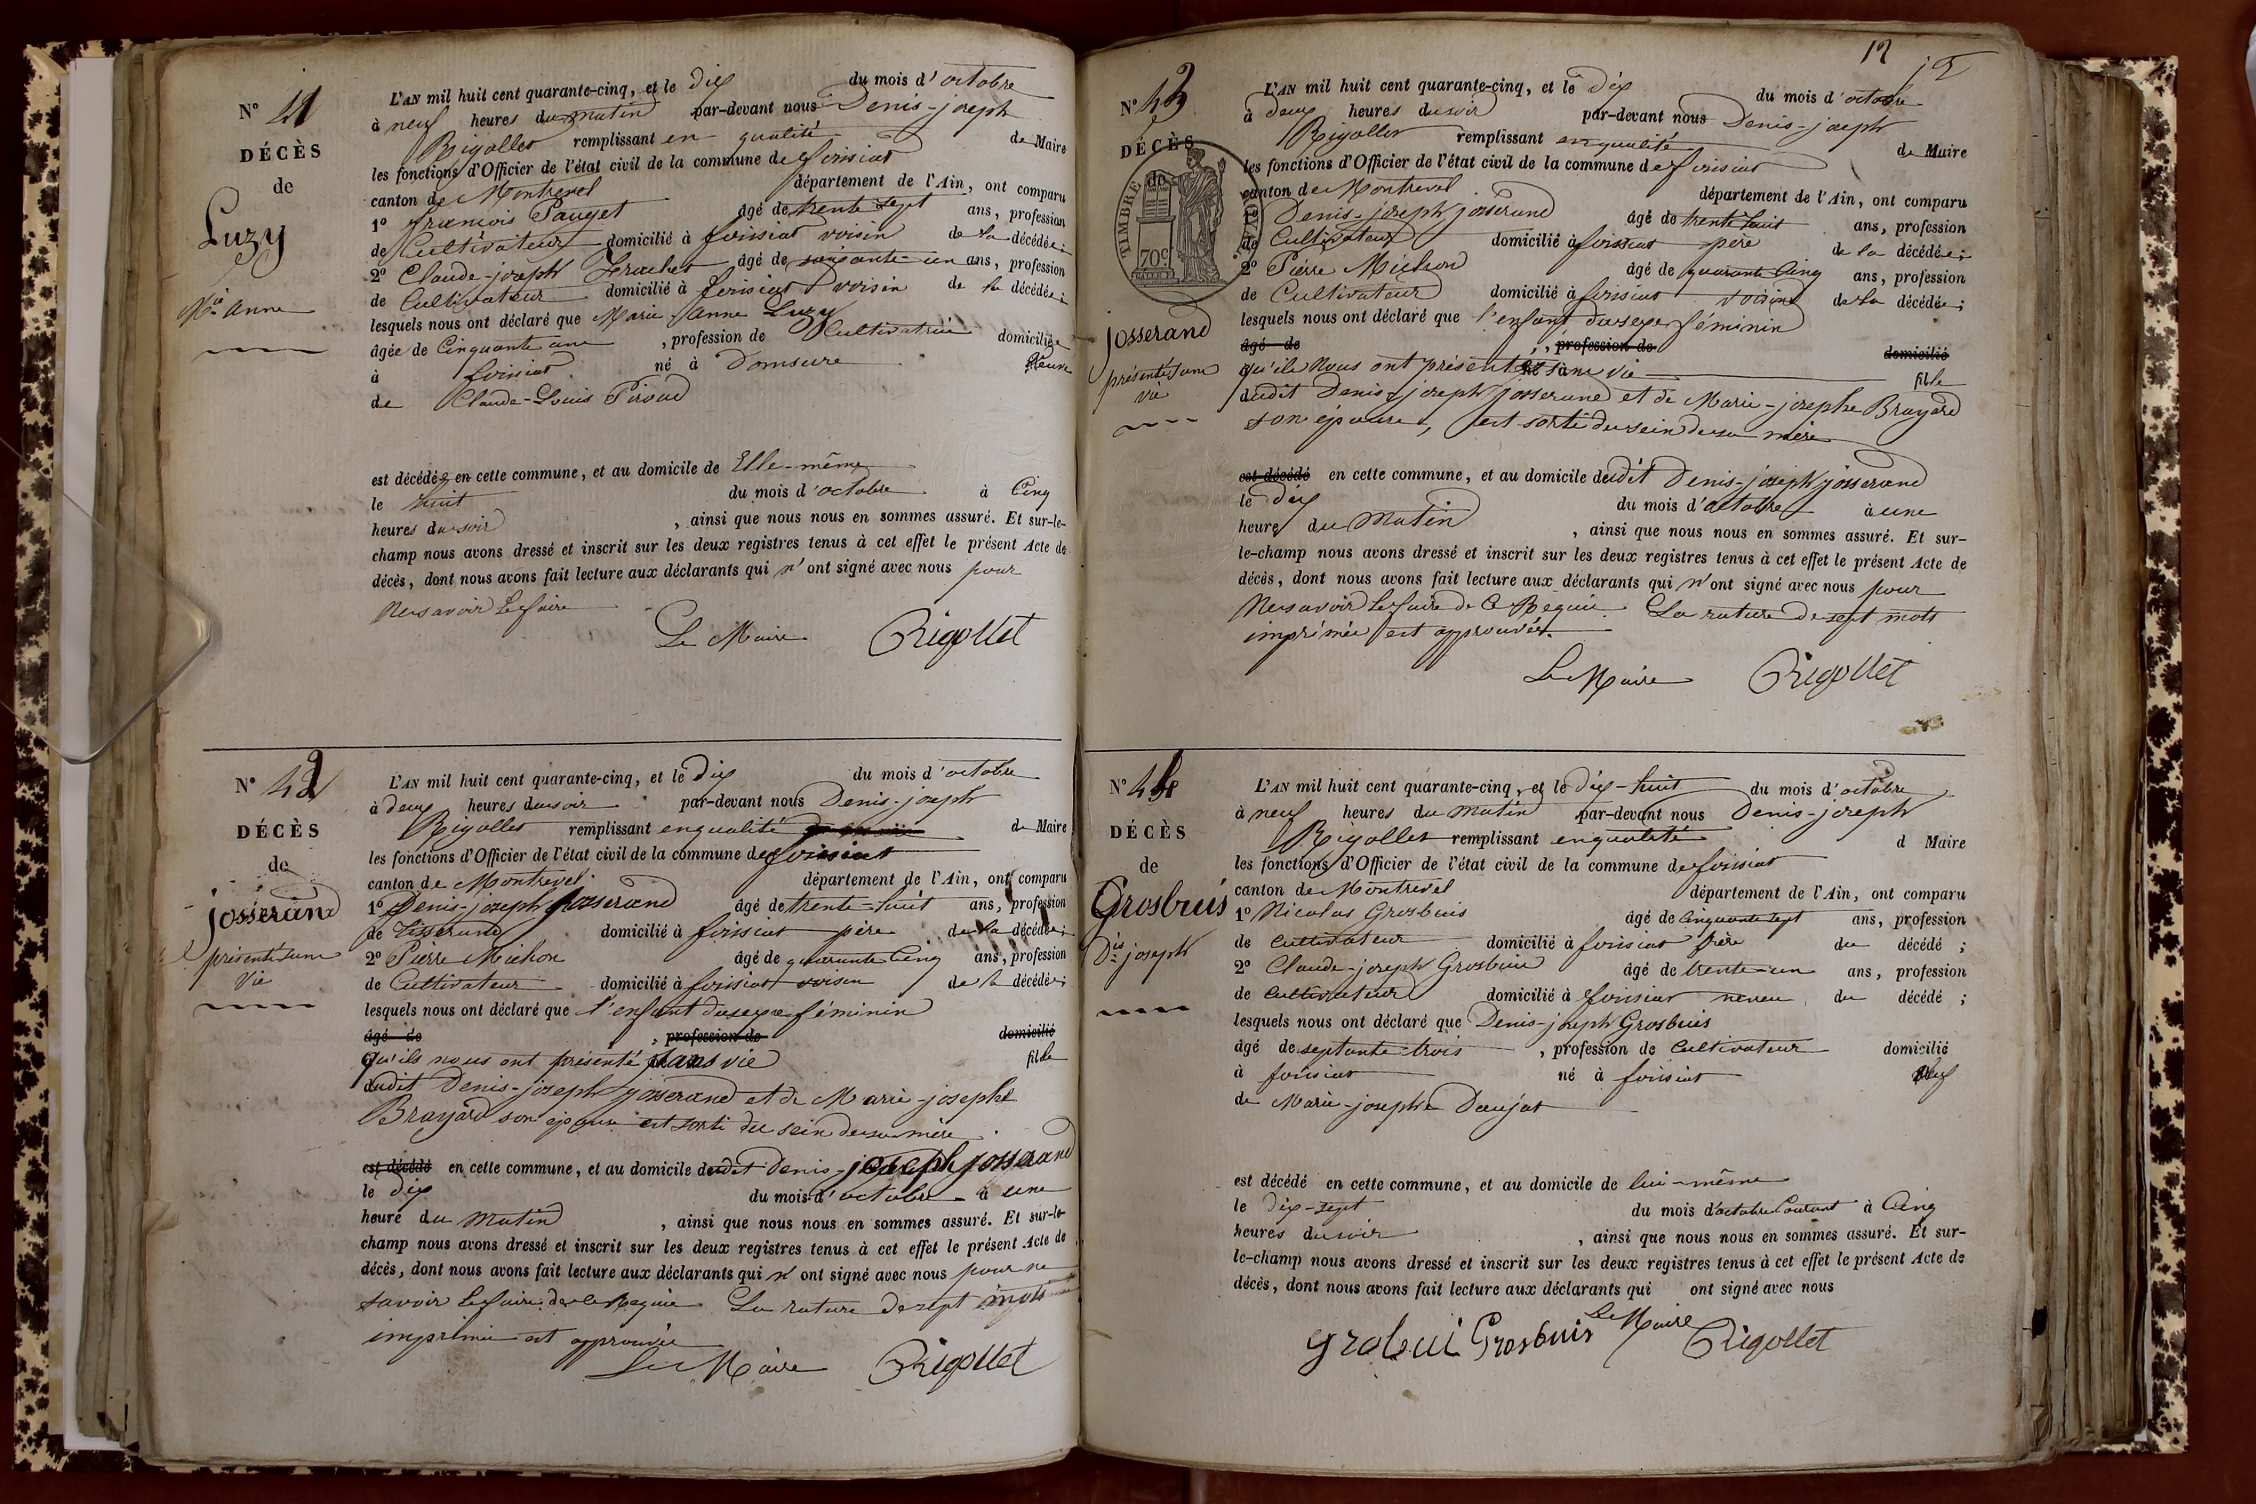 N° 41
DÉCÈS
de
Luzy
Mie anne
L'AN mil huit cent quarante-cinq, et le dix du mois d'octobre
à neuf heures du matin par-devant nous Denis-joseph
Rigollet remplissant en qualité de Maire
les fonctions d'Officier de l'état civil de la commune de foissiat
canton de Montrevel département de l'Ain, ont comparu
1° françois Pauget âgé de trente sept ans, profession
de Cultivateur domicilié à foissiat voisin de la décédée;
2° Claude-joseph âgé de soixante-un ans, profession
de Cultivateur domicilié à foissiat voisin de la décédée;
lesquels nous ont déclaré que Marie Anne Luzy
âgée de Cinquante ans, profession de Cultivatrice domiciliée
à foissiat né à Domsure Veuve
de Claude-Louis Piroud
est décédée en cette commune, et au domicile de Elle-même
le huit du mois d'octobre à Cinq
heures du soir, ainsi que nous nous en sommes assuré. Et sur-le-
champ nous avons dressé et inscrit sur les deux registres tenus à cet effet le présent Acte de
décès, dont nous avons fait lecture aux déclarants qui n'ont signé avec nous pour
ne savoir le faire
Le Maire Rigollet
N° 42
DÉCÈS
de
josserand
présenté sans
vie
L'AN mil huit cent quarante-cinq, et le dix du mois d'octobre
à deux heures du soir par-devant nous Denis-joseph
Rigollet remplissant en qualité de Maire
les fonctions d'Officier de l'état civil de la commune de foissiat
canton de Montrevel département de l'Ain, ont comparu
1° Denis-joseph josserand âgé de trente-huit ans, profession
de tisserand domicilié à foissiat père de la décédée;
2° Pierre Michon âgé de quarante Cinq ans, profession
de Cultivateur domicilié à foissiat voisin de la décédée;
lesquels nous ont déclaré que l'enfant du sexe féminin
âgé de , profession de domicilié
qu'ils nous ont présenté sans vie fille
dudit Denis-joseph josserand et de Marie-josephe
Brayard son épouse est sorti du sein de sa mère
est décédé en cette commune, et au domicile dudit Denis-joseph josserand
le dix du mois d'octobre à une
heure du matin, ainsi que nous nous en sommes assuré. Et sur-le-
champ nous avons dressé et inscrit sur les deux registres tenus à cet effet le présent Acte de
décès, dont nous avons fait lecture aux déclarants qui n'ont signé avec nous pour ne
savoir le faire de ce Requis La rature de sept mots
imprimés est approuvée
Le Maire Rigollet
12
12
N° 43
DÉCÈS
de
TIMBRE ROYAL
70c.
josserand
présenté sans
vie
L'AN mil huit cent quarante-cinq, et le dix du mois d'octobre
à deux heures du soir par-devant nous Denis-joseph
Rigollet remplissant en qualité de Maire
les fonctions d'Officier de l'état civil de la commune de foissiat
canton de Montrevel département de l'Ain, ont comparu
Denis-joseph josserand âgé de trente huit ans, profession
de Cultivateur domicilié à foissiat père de la décédée;
2° Pierre Michon âgé de quarante Cinq ans, profession
de Cultivateur domicilié à foissiat voisin de la décédée;
lesquels nous ont déclaré que l'enfant du sexe féminin
âgé de , profession de domicilié
qu'ils nous ont présenté sans vie fille
dudit Denis-joseph josserand et de Marie-josephe Brayard
son épouse, est sorti du sein de sa mère
est décédé en cette commune, et au domicile dudit Denis-joseph josserand
le dix du mois d'octobre à une
heure du matin, ainsi que nous nous en sommes assuré. Et sur-
le-champ nous avons dressé et inscrit sur les deux registres tenus à cet effet le présent Acte de
décès, dont nous avons fait lecture aux déclarants qui n'ont signé avec nous pour
ne savoir le faire de ce Requis La rature de sept mots
imprimés est approuvée.
Le Maire Rigollet
N° 44
DÉCÈS
de
Grosbuis
Dis joseph
L'AN mil huit cent quarante-cinq, et le dix-huit du mois d'octobre
à neuf heures du matin par-devant nous Denis-joseph
Rigollet remplissant en qualité d Maire
les fonctions d'Officier de l'état civil de la commune de foissiat
canton de Montrevel département de l'Ain, ont comparu
1° Nicolas Grosbuis âgé de Cinquante sept ans, profession
de Cultivateur domicilié à foissiat frère du décédé ;
2° Claude-joseph Grosbuis âgé de trente-un ans, profession
de Cultivateur domicilié à foissiat neveu du décédé ;
lesquels nous ont déclaré que Denis-joseph Grosbuis
âgé de septante-trois, profession de Cultivateur domicilié
à foissiat né à foissiat Veuf
de Marie-josephe Daujat
est décédé en cette commune, et au domicile de lui-même
le dix-sept du mois d'octobre Courant à Cinq
heures du soir, ainsi que nous nous en sommes assuré. Et sur-
le-champ nous avons dressé et inscrit sur les deux registres tenus à cet effet le présent Acte de
décès, dont nous avons fait lecture aux déclarants qui ont signé avec nous
Le Maire
grobui Grosbuis Rigollet